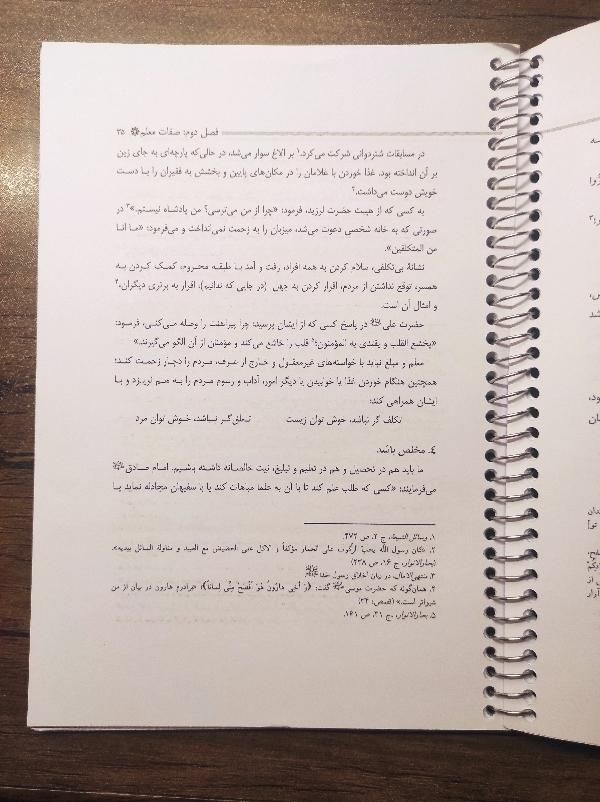 فصل دوم: صفات معلم ۳۵
در مسابقات شتردوانی شرکت می‌کرد.۱ بر الاغ سوار می‌شد، در حالی‌که پارچه‌ای به جای زین
بر آن انداخته بود. غذا خوردن با غلامان را در مکان‌های پایین و بخشش به فقیران را بـا دسـت
خویش دوست می‌داشت.۲
به کسی که از هیبت حضرت لرزید، فرمود: «چرا از من می‌ترسی؟ من پادشاه نیستم.»۳ در
صورتی که به خانه شخصی دعوت می‌شد، میزبان را به زحمت نمی‌انداخت و می‌فرمود: «مـا انـا
من المتکلفین».
نشانهٔ بی‌تکلفی، سلام کردن به همه افراد، رفت و آمد بـا طبقـه محـروم، کمـک کـردن بـه
همسر، توقع نداشتن از مردم، اقرار کردن به جهل (در جایی که ندانیم)، اقرار به برتری دیگران،۴
و امثال آن است.
حضرت علی در پاسخ کسی که از ایشان پرسید: چرا پیراهنت را وصله مـی‌کنـی، فرمـود:
«یخشع القلب و یقتدی به المؤمنون؛۵ قلب را خاشع می‌کند و مؤمنان از آن الگو می‌گیرند.»
معلم و مبلغ نباید با خواسته‌های غیرمعقـول و خـارج از عـرف، مـردم را دچـار زحمـت کنـد؛
همچنین هنگام خوردن غذا یا خوابیدن یا دیگر امور، آداب و رسوم مـردم را بـه هـم نریـزد و بـا
ایشان همراهی کند:
تکلف گر نباشد، خوش توان زیست تـعلق‌گـر نبـاشد، خـوش توان مرد
٤. مخلص باشد
ما باید هم در تحصیل و هم در تعلیم و تبلیغ، نیت خالصانه داشته باشـیم. امـام صـادق
می‌فرمایند: «کسی که طلب علم کند تا با آن به علما مباهات کند یا با سفیهان مجادله نماید یـا
۱. وسائل الشیعه، ج ۲، ص ۴۷۲.
۲. «کان رسول اللّه یحبّ الرکوب علی الحمار مؤکفاً و الاکل علی الحضیض مع العبید و مناولة السائل بیدیه».
(بحارالانوار، ج ۱۶، ص ۲۳۸)
۳. منتهی‌الآمال، در بیان اخلاق رسول خدا
۴. همان‌گونه که حضرت موسی گفت: ﴿وَ أَخِی هَارُونُ هُوَ أَفْصَحُ مِنِّی لِسَاناً﴾؛ «برادرم هارون در بیان از من
شیواتر است.» (قصص: ۳۴)
۵. بحارالانوار، ج ۴۱، ص ۱۶۱.